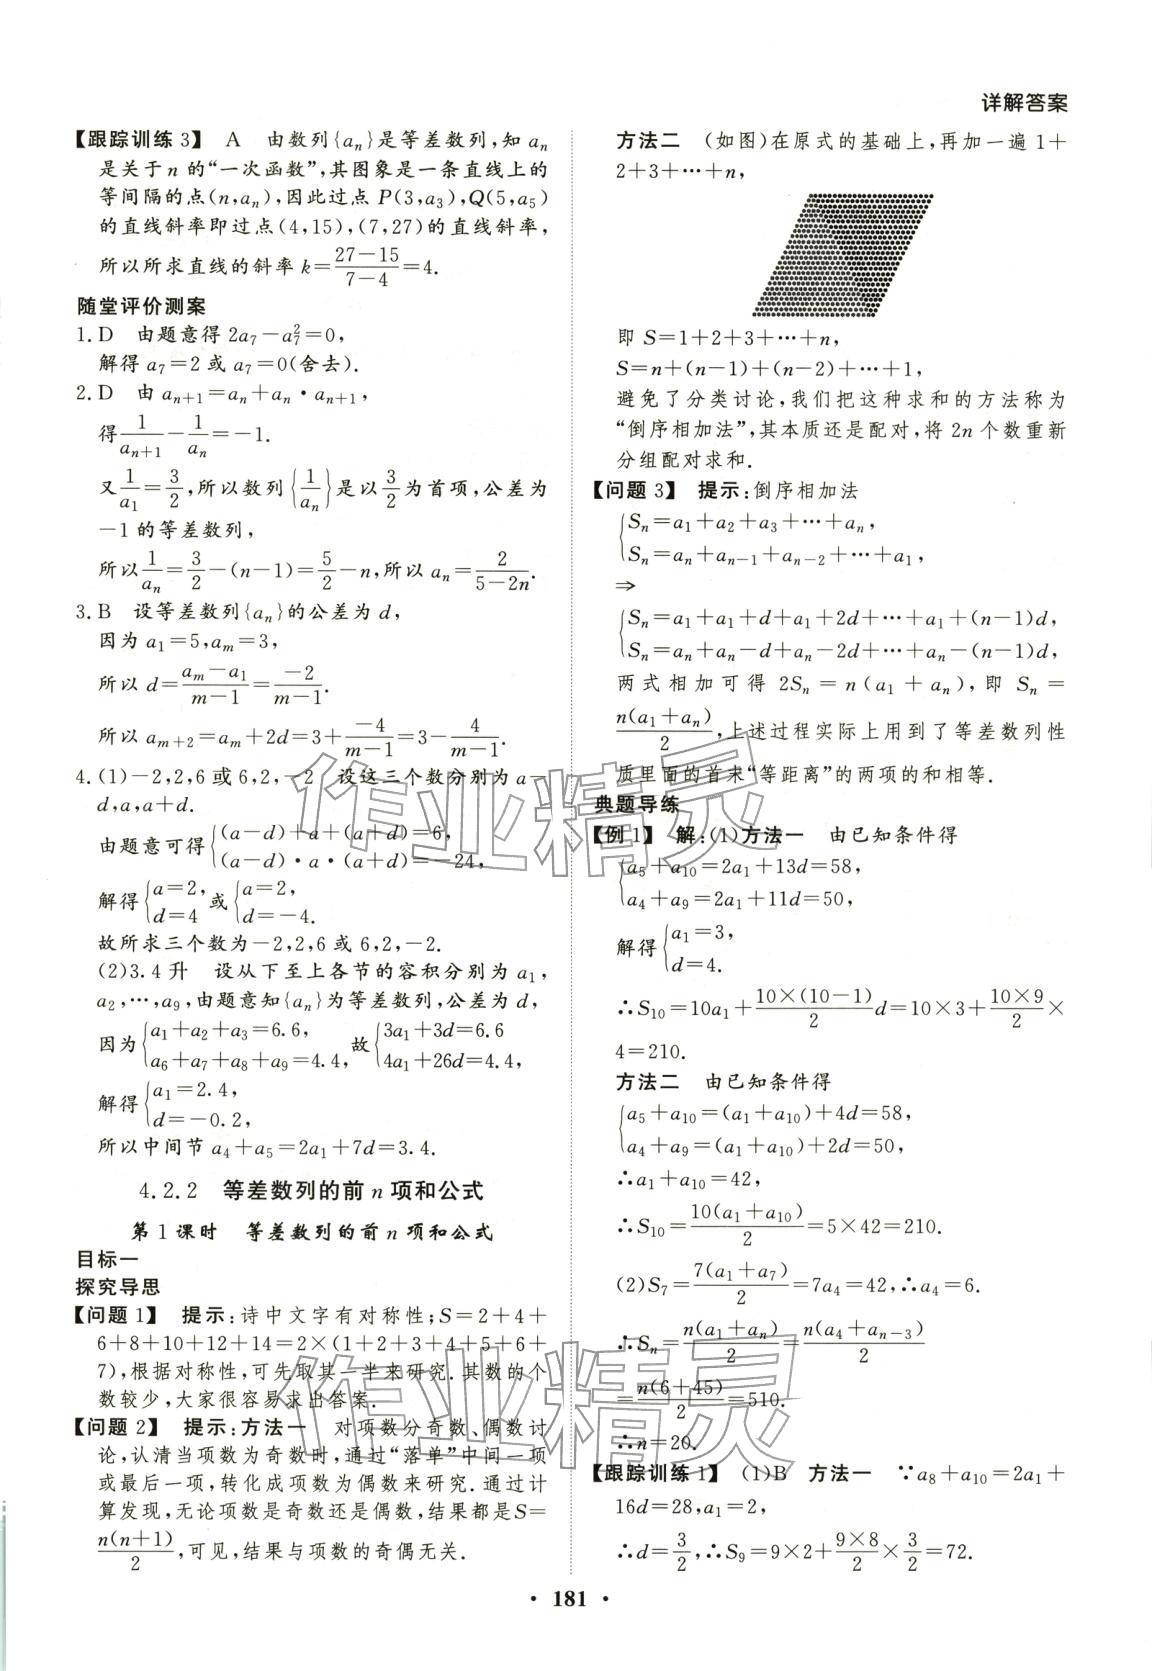 详解答案
【跟踪训练3】 A 由数列{aₙ}是等差数列,知 aₙ
是关于 n 的“一次函数”,其图象是一条直线上的
等间隔的点(n,aₙ),因此过点 P(3,a₃),Q(5,a₅)
的直线斜率即过点(4,15),(7,27)的直线斜率,
所以所求直线的斜率 k=(27−15)/(7−4)=4.
随堂评价测案
1. D 由题意得 2a₇−a₇²=0,
解得 a₇=2 或 a₇=0(舍去).
2. D 由 aₙ₊₁=aₙ+aₙ·aₙ₊₁,
得 1/aₙ₊₁−1/aₙ=−1.
又 1/a₁=3/2,所以数列{1/aₙ}是以 3/2 为首项,公差为
−1 的等差数列,
所以 1/aₙ=3/2−(n−1)=5/2−n,所以 aₙ=2/(5−2n).
3. B 设等差数列{aₙ}的公差为 d,
因为 a₁=5,aₘ=3,
所以 d=(aₘ−a₁)/(m−1)=−2/(m−1).
所以 aₘ₊₂=aₘ+2d=3+−4/(m−1)=3−4/(m−1).
4. (1)−2,2,6 或 6,2,−2 设这三个数分别为 a−
d,a,a+d.
由题意可得{(a−d)+a+(a+d)=6,
(a−d)·a·(a+d)=−24,
解得{a=2, d=4 或{a=2, d=−4.
故所求三个数为−2,2,6 或 6,2,−2.
(2)3.4 升 设从下至上各节的容积分别为 a₁,
a₂,⋯,a₉,由题意知{aₙ}为等差数列,公差为 d,
因为{a₁+a₂+a₃=6.6, a₆+a₇+a₈+a₉=4.4, 故{3a₁+3d=6.6 4a₁+26d=4.4,
解得{a₁=2.4, d=−0.2,
所以中间节 a₄+a₅=2a₁+7d=3.4.
4.2.2 等差数列的前 n 项和公式
第1课时 等差数列的前 n 项和公式
目标一
探究导思
【问题1】 提示:诗中文字有对称性;S=2+4+
6+8+10+12+14=2×(1+2+3+4+5+6+
7),根据对称性,可先取其一半来研究.其数的个
数较少,大家很容易求出答案.
【问题2】 提示:方法一 对项数分奇数、偶数讨
论,认清当项数为奇数时,通过“落单”中间一项
或最后一项,转化成项数为偶数来研究.通过计
算发现,无论项数是奇数还是偶数,结果都是 S=
n(n+1)/2,可见,结果与项数的奇偶无关.
方法二 (如图)在原式的基础上,再加一遍 1+
2+3+⋯+n,
即 S=1+2+3+⋯+n,
S=n+(n−1)+(n−2)+⋯+1,
避免了分类讨论,我们把这种求和的方法称为
“倒序相加法”,其本质还是配对,将 2n 个数重新
分组配对求和.
【问题3】 提示:倒序相加法
{Sₙ=a₁+a₂+a₃+⋯+aₙ,
Sₙ=aₙ+aₙ₋₁+aₙ₋₂+⋯+a₁,
⇒
{Sₙ=a₁+a₁+d+a₁+2d+⋯+a₁+(n−1)d,
Sₙ=aₙ+aₙ−d+aₙ−2d+⋯+aₙ−(n−1)d,
两式相加可得 2Sₙ=n(a₁+aₙ),即 Sₙ=
n(a₁+aₙ)/2,上述过程实际上用到了等差数列性
质里面的首末“等距离”的两项的和相等.
典题导练
【例1】 解:(1)方法一 由已知条件得
{a₅+a₁₀=2a₁+13d=58,
a₄+a₉=2a₁+11d=50,
解得{a₁=3, d=4.
∴S₁₀=10a₁+10×(10−1)/2 d=10×3+10×9/2×
4=210.
方法二 由已知条件得
{a₅+a₁₀=(a₁+a₁₀)+4d=58,
a₄+a₉=(a₁+a₁₀)+2d=50,
∴a₁+a₁₀=42,
∴S₁₀=10(a₁+a₁₀)/2=5×42=210.
(2)S₇=7(a₁+a₇)/2=7a₄=42,∴a₄=6.
∴Sₙ=n(a₁+aₙ)/2=n(a₄+aₙ₋₃)/2
=n(6+45)/2=510.
∴n=20.
【跟踪训练1】 (1)B 方法一 ∵a₈+a₁₀=2a₁+
16d=28,a₁=2,
∴d=3/2,∴S₉=9×2+9×8/2×3/2=72.
· 181 ·
作业精灵
作业精灵